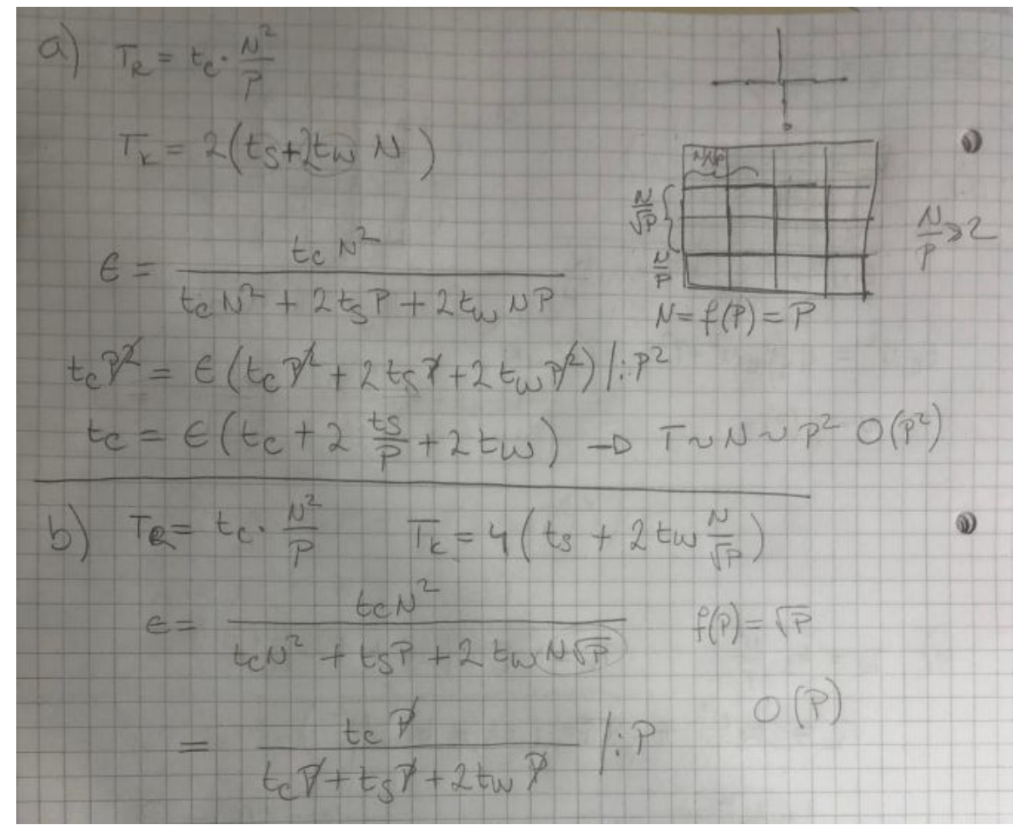 a) T_R = t_c · N²/P
T_K = 2(t_s + 2t_w N)
N/√P
N/P
N/P ≥ 2
N = f(P) = P
ϵ = t_c N² / (t_c N² + 2t_s P + 2t_w NP)
t_c P² = ϵ(t_c P² + 2t_s P + 2t_w P²) /:P²
t_c = ϵ(t_c + 2 t_s/P + 2t_w) → T ~ N ~ P² O(P²)
b) T_R = t_c · N²/P T_K = 4(t_s + 2t_w N/√P)
ϵ = t_c N² / (t_c N² + t_s P + 2t_w N√P) f(P) = √P
= t_c P / (t_c P + t_s P + 2t_w P) /:P O(P)